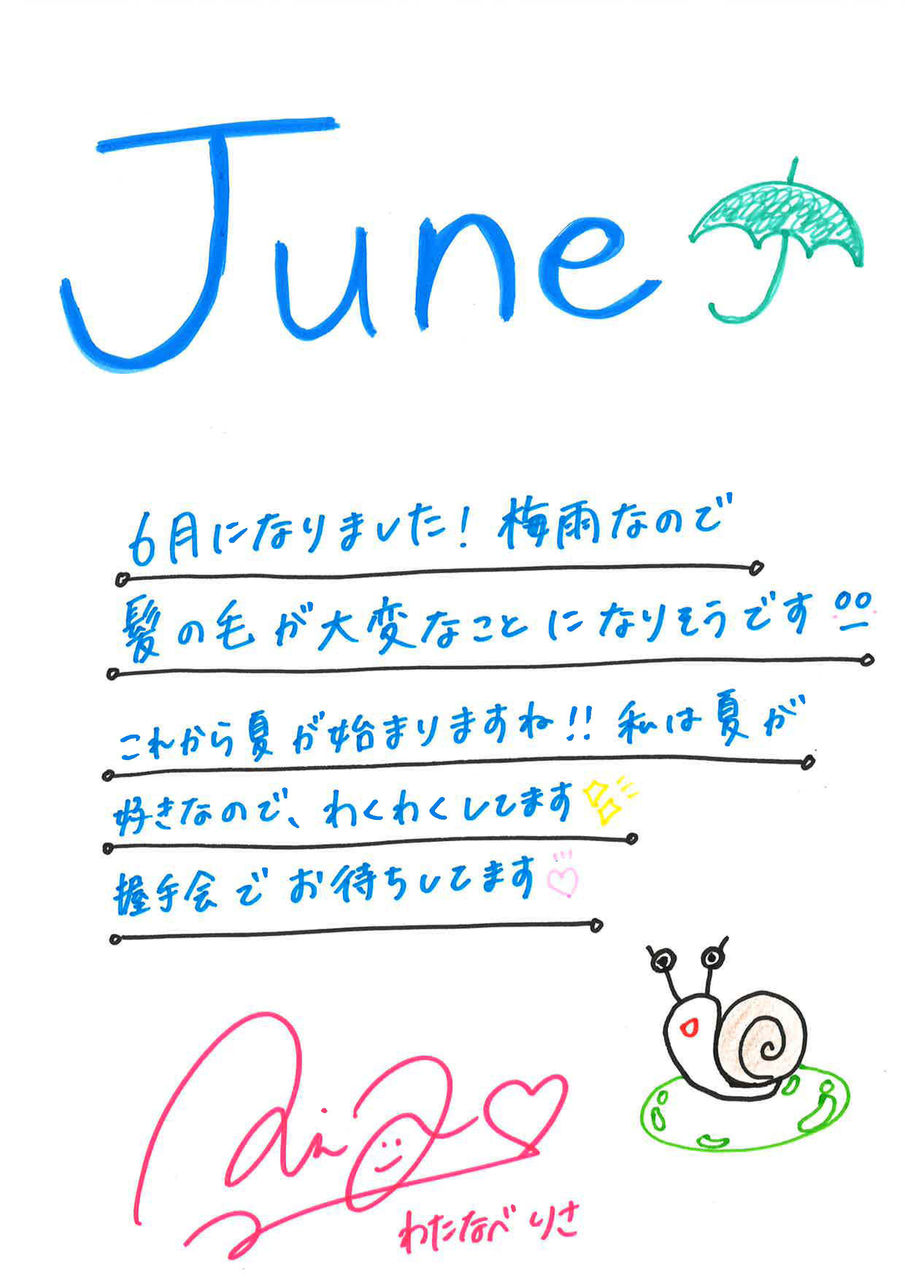 June
6月になりました！梅雨なので
髪の毛が大変なことになりそうです
これから夏が始まりますね!!私は夏が
好きなので、わくわくしてます
握手会でお待ちしてます♡
わたなべ りさ